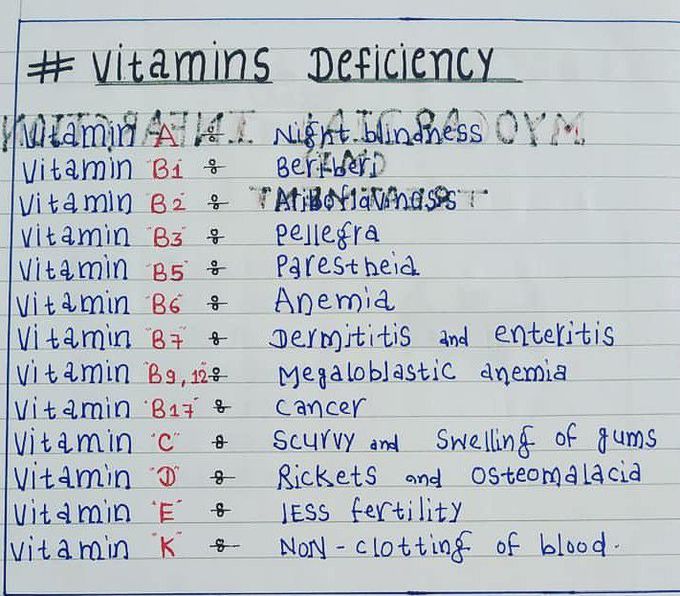 # Vitamins Deficiency
Vitamin "A" :- Night blindness
Vitamin "B1" :- Beriberi
Vitamin "B2" :-
Vitamin "B3" :- Pellegra
Vitamin "B5" :- Parestheia
Vitamin "B6" :- Anemia
Vitamin "B7" :- Dermititis and enteritis
Vitamin "B9,12" :- Megaloblastic anemia
Vitamin "B17" :- cancer
Vitamin "C" :- Scurvy and swelling of gums
Vitamin "D" :- Rickets and osteomalacia
Vitamin "E" :- less fertility
Vitamin "K" :- Non-clotting of blood.